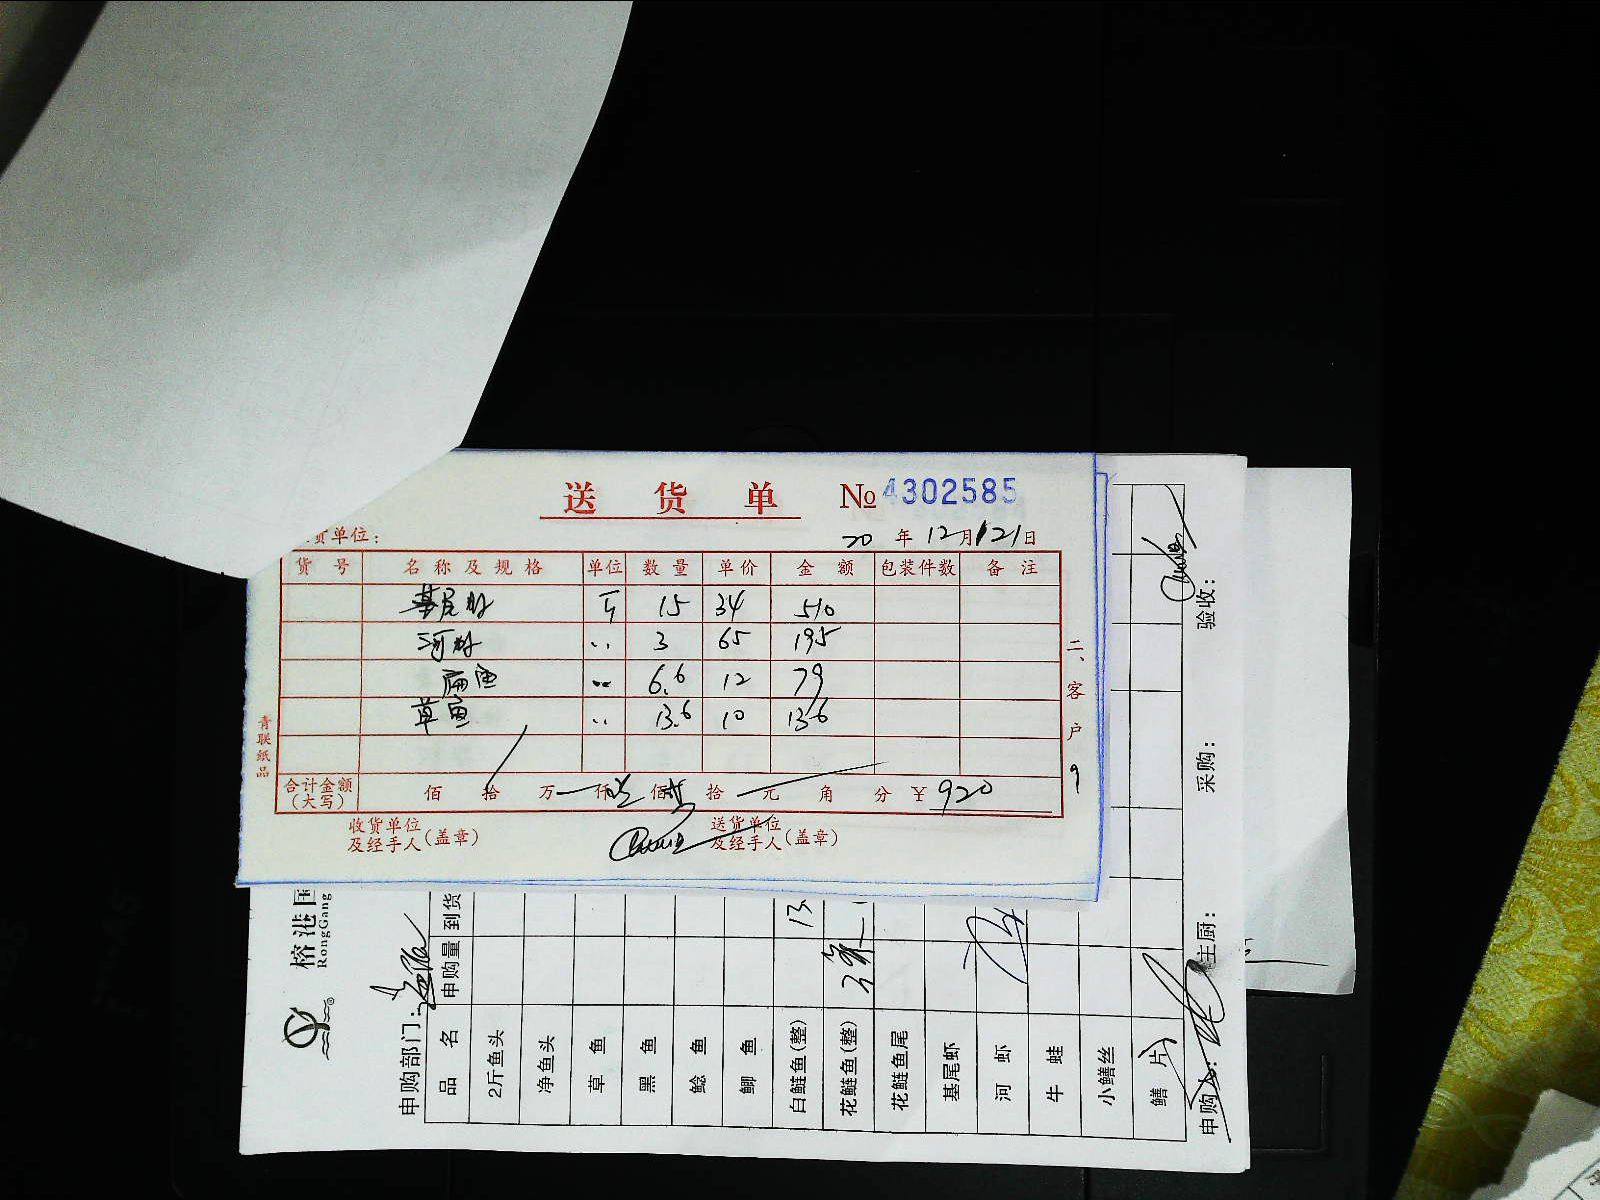 送货单 № 4302585
货单位:
20 年 12月 12日
货号 名称及规格 单位 数量 单价 金额 包装件数 备注
基尾虾 斤 15 34 510
河虾 〃 3 65 195
扁鱼 〃 6.6 12 79
草鱼 〃 13.6 10 136
合计金额(大写) 佰 拾 万 仟 佰 拾 元 角 分 ¥ 920
收货单位及经手人(盖章) 送货单位及经手人(盖章)
二、客户
青联纸品
榕港国
RongGang
申购部门:
品名 申购量 到货
2斤鱼头
净鱼头
草鱼
黑鱼
鲶鱼
鲫鱼
白鲢鱼(整) 13
花鲢鱼(整)
花鲢鱼尾
基尾虾
河虾
牛蛙
小鳝丝
鳝片
申购人: 主厨: 采购: 验收: